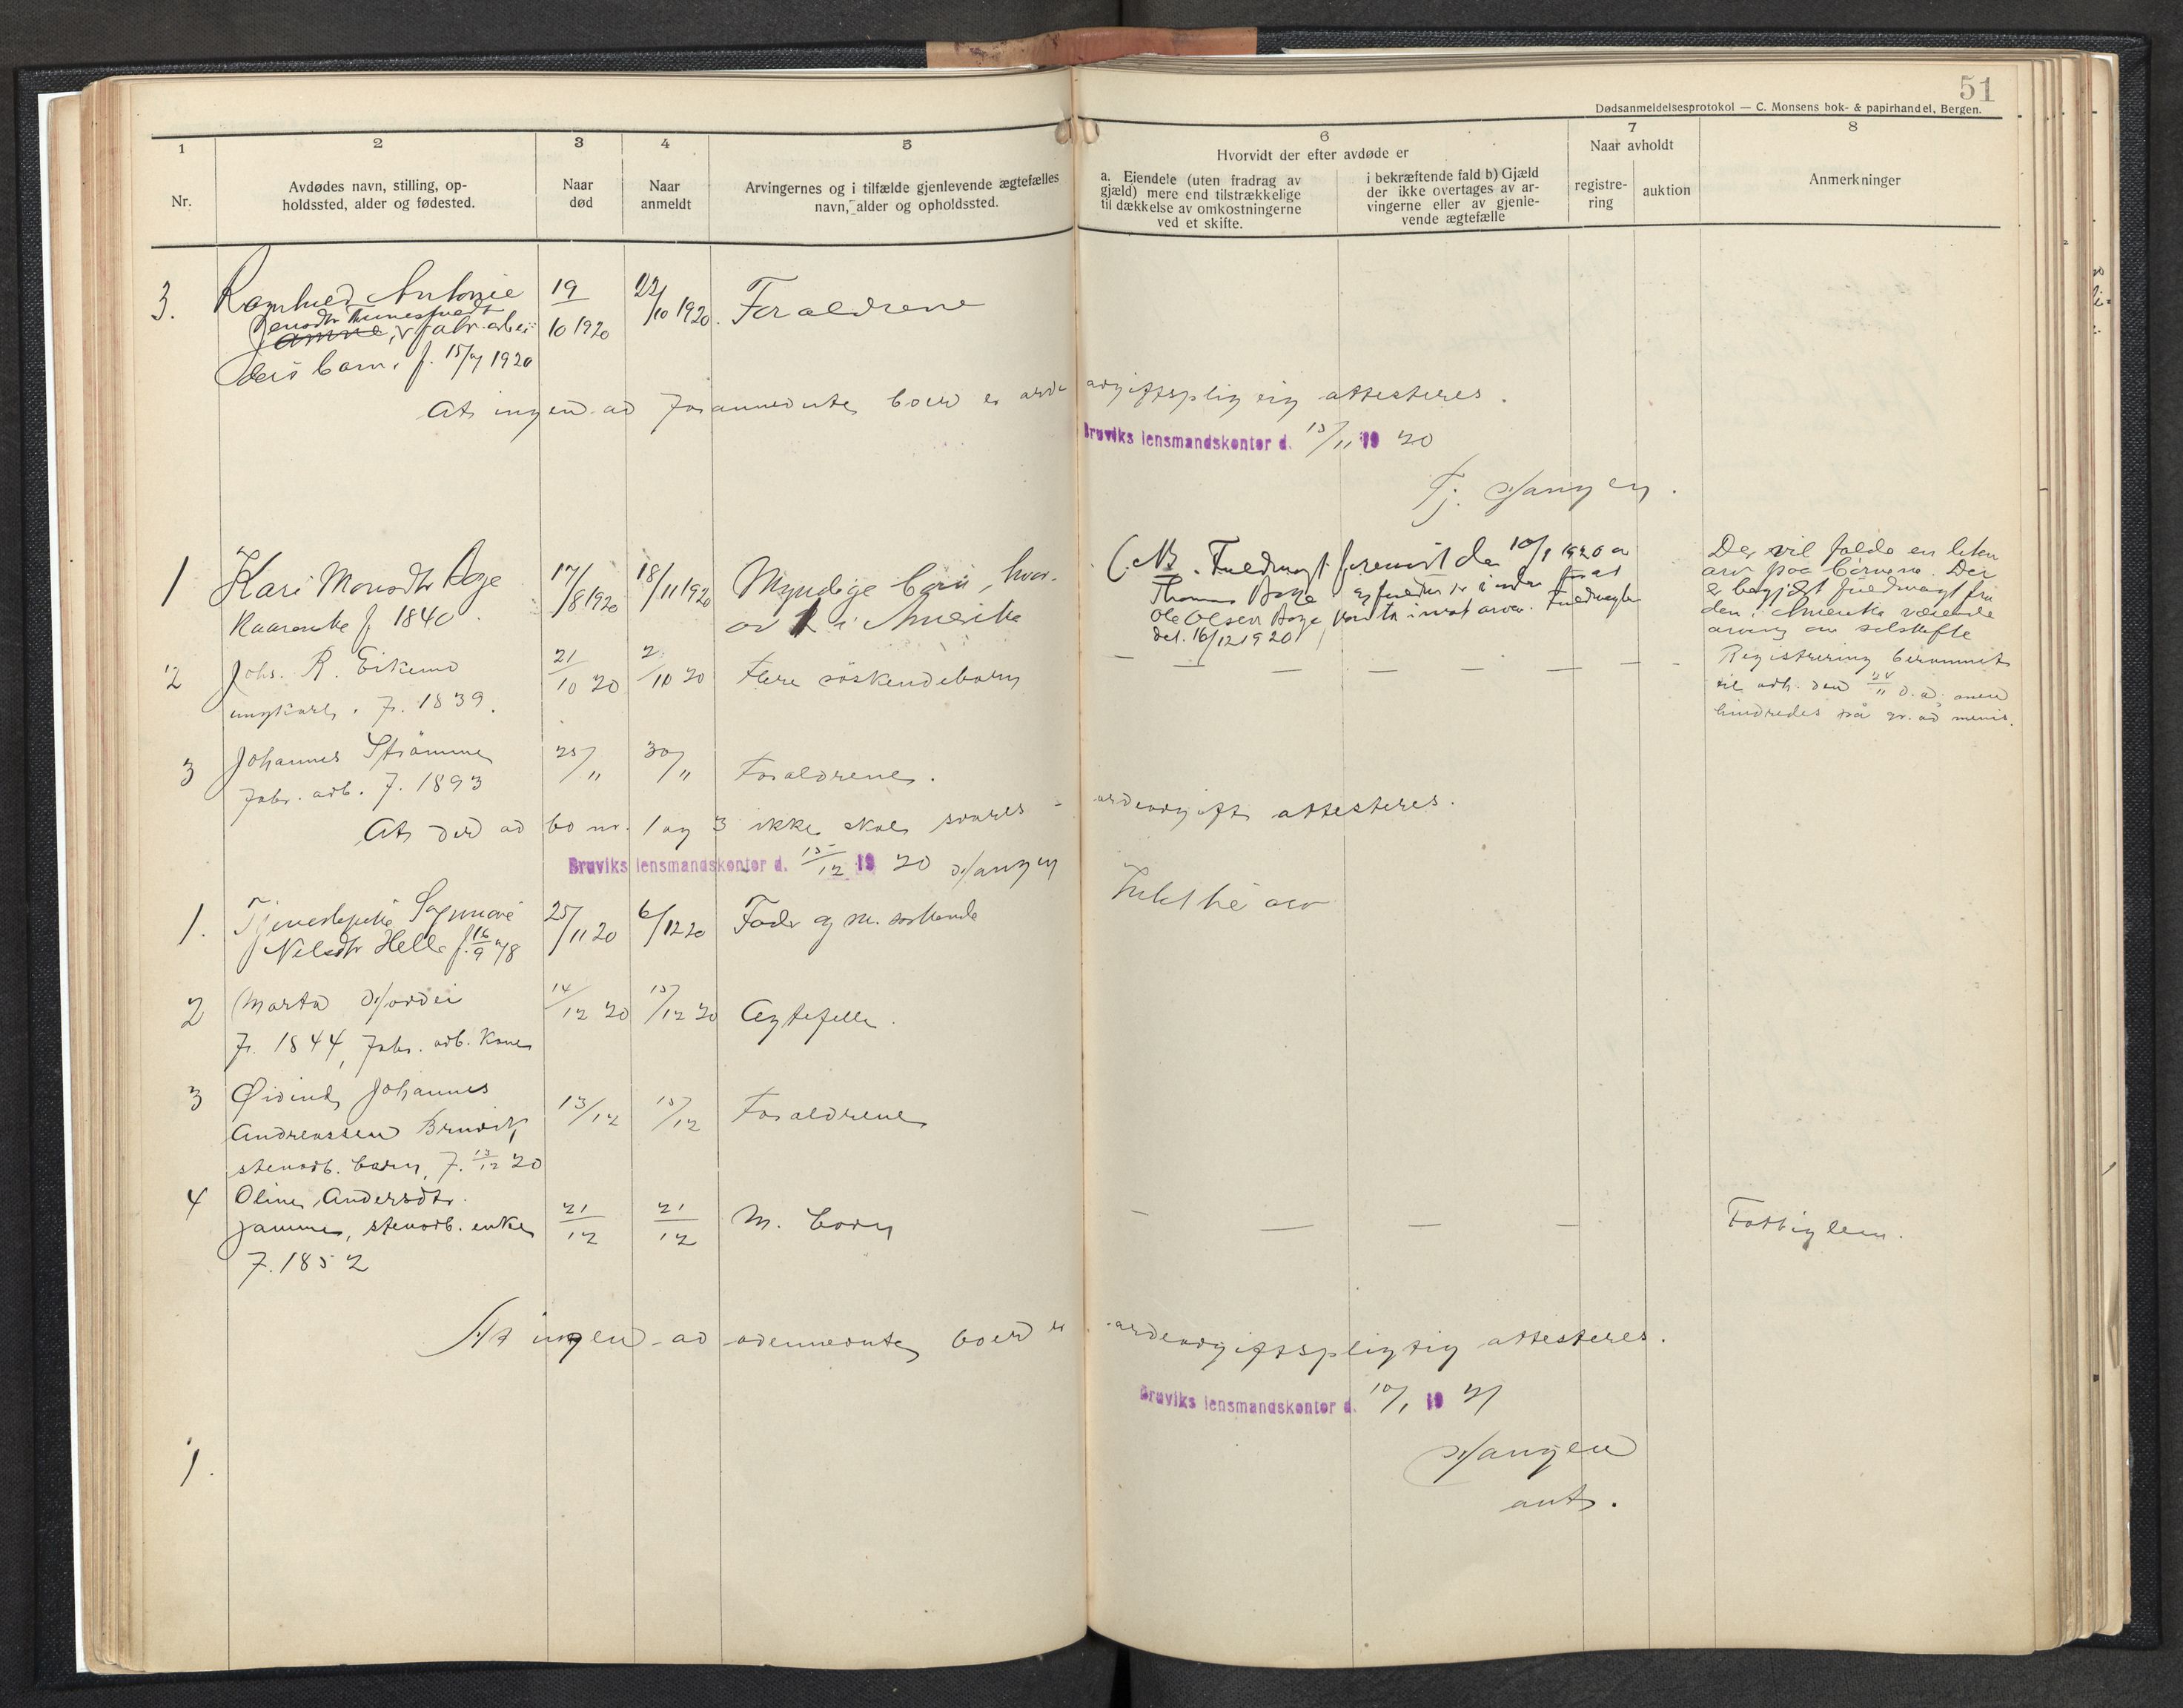 51
Dødsanmeldelsesprotokol — C. Monsens bok- & papirhandel, Bergen.
1
Nr.
2
Avdødes navn, stilling, op-
holdssted, alder og fødested.
3
Naar
død
4
Naar
anmeldt
5
Arvingernes og i tilfælde gjenlevende ægtefælles
navn, alder og opholdssted.
6
Hvorvidt der efter avdøde er
a. Eiendele (uten fradrag av
gjæld) mere end tilstrækkelige
til dækkelse av omkostningerne
ved et skifte.
i bekræftende fald b) Gjæld
der ikke overtages av ar-
vingerne eller av gjenle-
vende ægtefælle
7
Naar avholdt
registre-
ring
auktion
8
Anmerkninger
3. Ragnhild Antonie 19/10 1920 22/10 1920. Foraldrene
Jamne, fabr. arbei-
ders barn, f. 1920
At ingen av forannevnte boer er arve avgiftspligtig attesteres.
Bruviks lensmandskontor d. 15/11 1920
1 Kari Monsdtr 17/8 1920 18/11 1920 Myndige børn, hvor-
Kaarenke f 1840. av 1 i Amerika
Thomas
Ole Olsen
dat. 16/12 1920
Der vil falde en liten
arv paa børnene. Der
er begjært fuldmagt fra
den i Amerika værende
arving om selskifte
2 Johs. R. Eikemo 21/10 20 flere söskendebarn
ungkarl. f. 1839.
— — — — — — —
Registrering berammet
til avh. den 24/11 d. å. men
hindredes på gr. av
3 Johannes Strömme 25/11 30/11 Foraldrene.
Fabr. arb. f. 1893
At der av bo nr. 1 og 3 ikke skal svares arveavgift attesteres.
Bruviks lensmandskontor d. 15/12 1920
1. Tjenestepike 25/11 20 6/12 20 Fader og m. søskende
Nilsdtr Helle f. 16/9
Intet til arv
2 Marta 14/12 20 15/12 20 Egtefelle.
f. 1844, Fabr. arb. kone
3 Øivind Johannes 13/12 15/12 Foraldrene
Andreassen Bruvik,
stenarb. barn, f. 13/12 20
4 Oline Andersdtr. 21/12 21/12 M. barn
Jamne, stenarb. enke
f. 1852
— — — —
Fattiglem.
At ingen av ovennevnte boer er arveavgiftspligtig attesteres.
Bruviks lensmandskontor d. 10/1 1921
1.